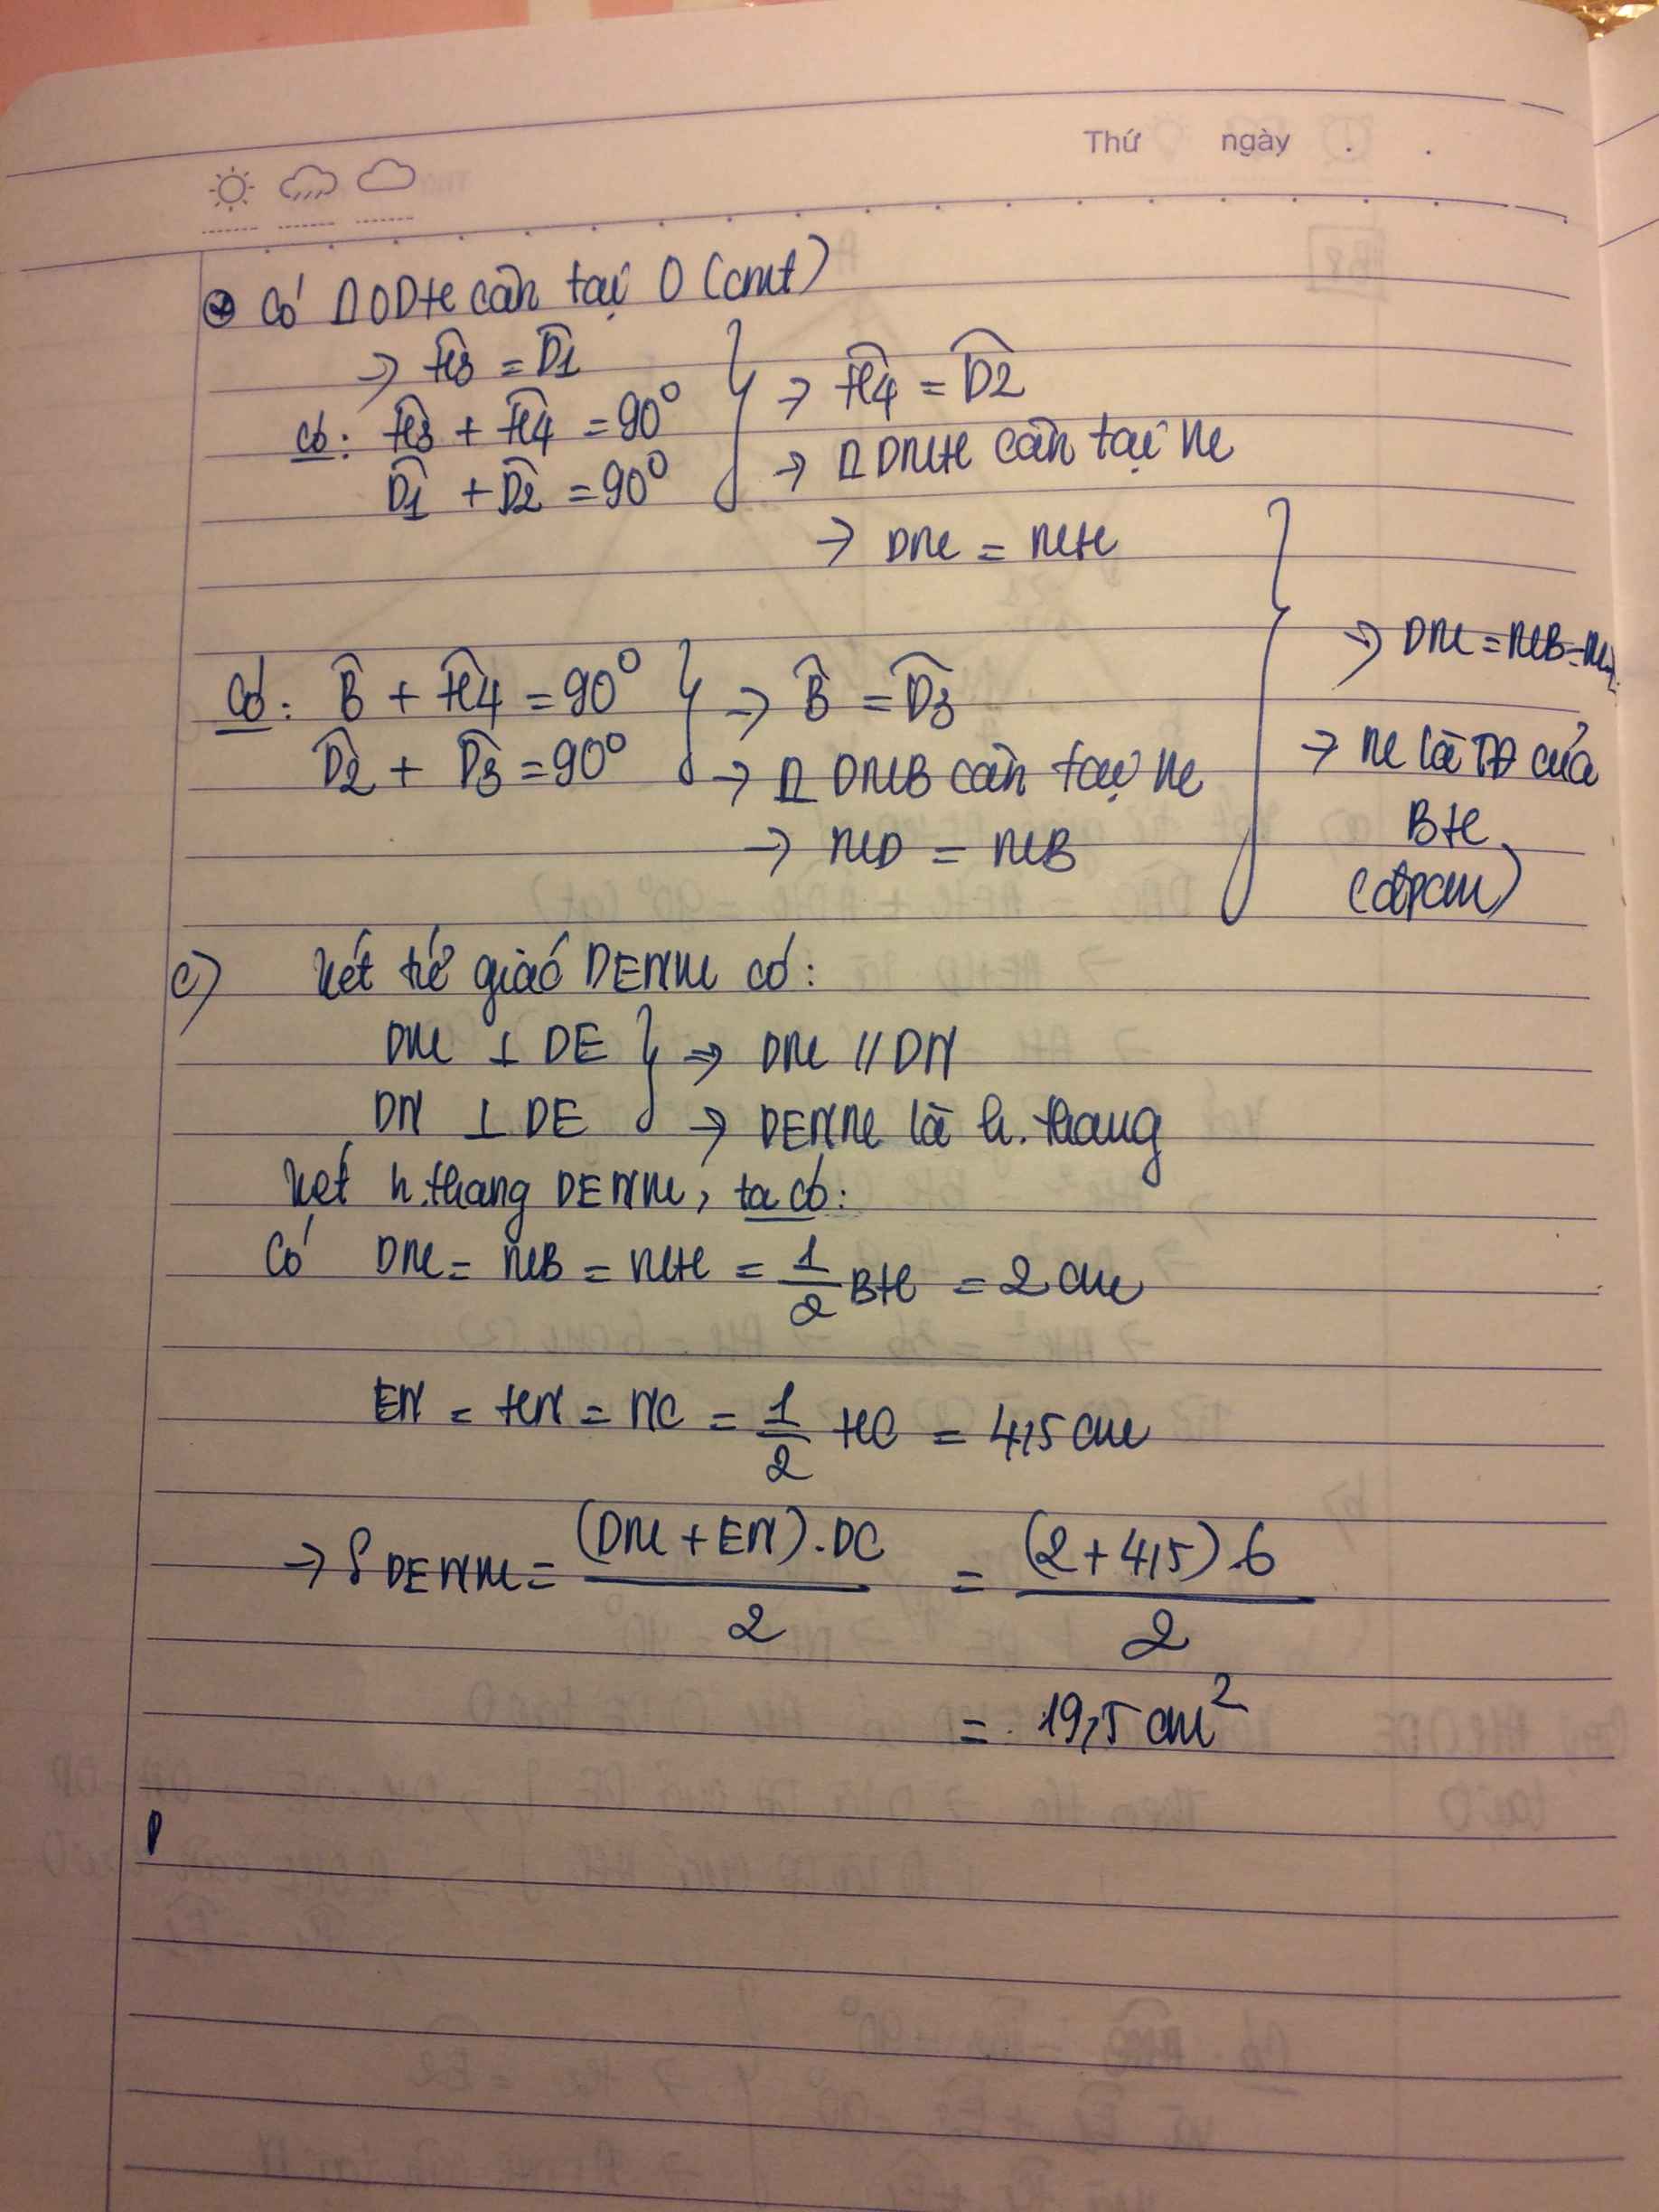 Thứ ngày . .
Có ΔODH cân tại O (cmt)
→ Ĥ3 = D̂1
Có: Ĥ3 + Ĥ4 = 90°
D̂1 + D̂2 = 90°
→ Ĥ4 = D̂2
→ Δ DMH cân tại M
→ DM = MH
Có: B̂ + Ĥ4 = 90°
D̂2 + D̂3 = 90°
→ B̂ = D̂3
→ Δ DMB cân tại M
→ MD = MB
→ DM = MB =
→ M là TĐ của
BH
(đpcm)
c) Xét tứ giác DENM có:
DM ⊥ DE
DN ⊥ DE
⇒ DM // DN
→ DENM là h. thang
Xét h.thang DENM, ta có:
Có DM = MB = MH = 1/2 BH = 2 cm
EN = HN = NC = 1/2 HC = 4,5 cm
→ S DENM = (DM + EN) . DC / 2 = (2 + 4,5) . 6 / 2
= 19,5 cm²